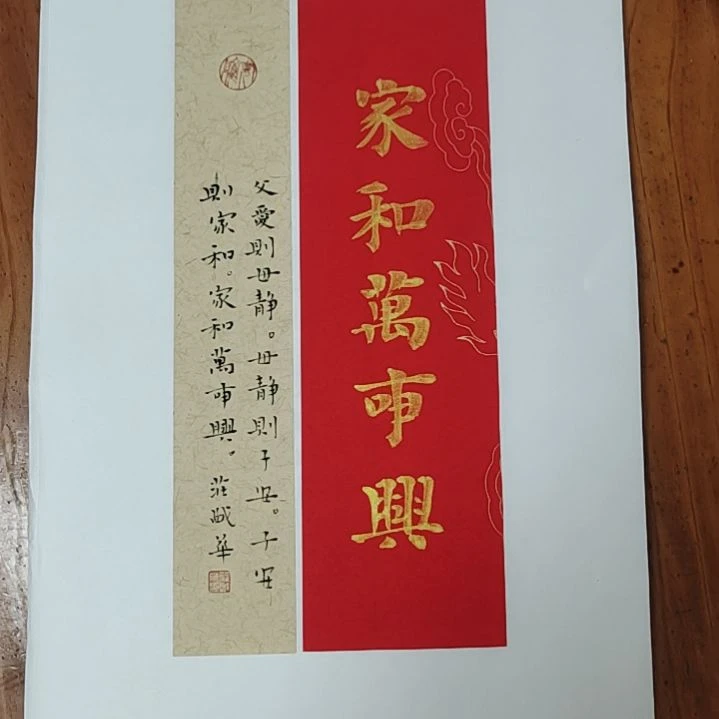 家和萬事興
父愛則母靜。母靜則子安。子安
則家和。家和萬事興。莊晟華